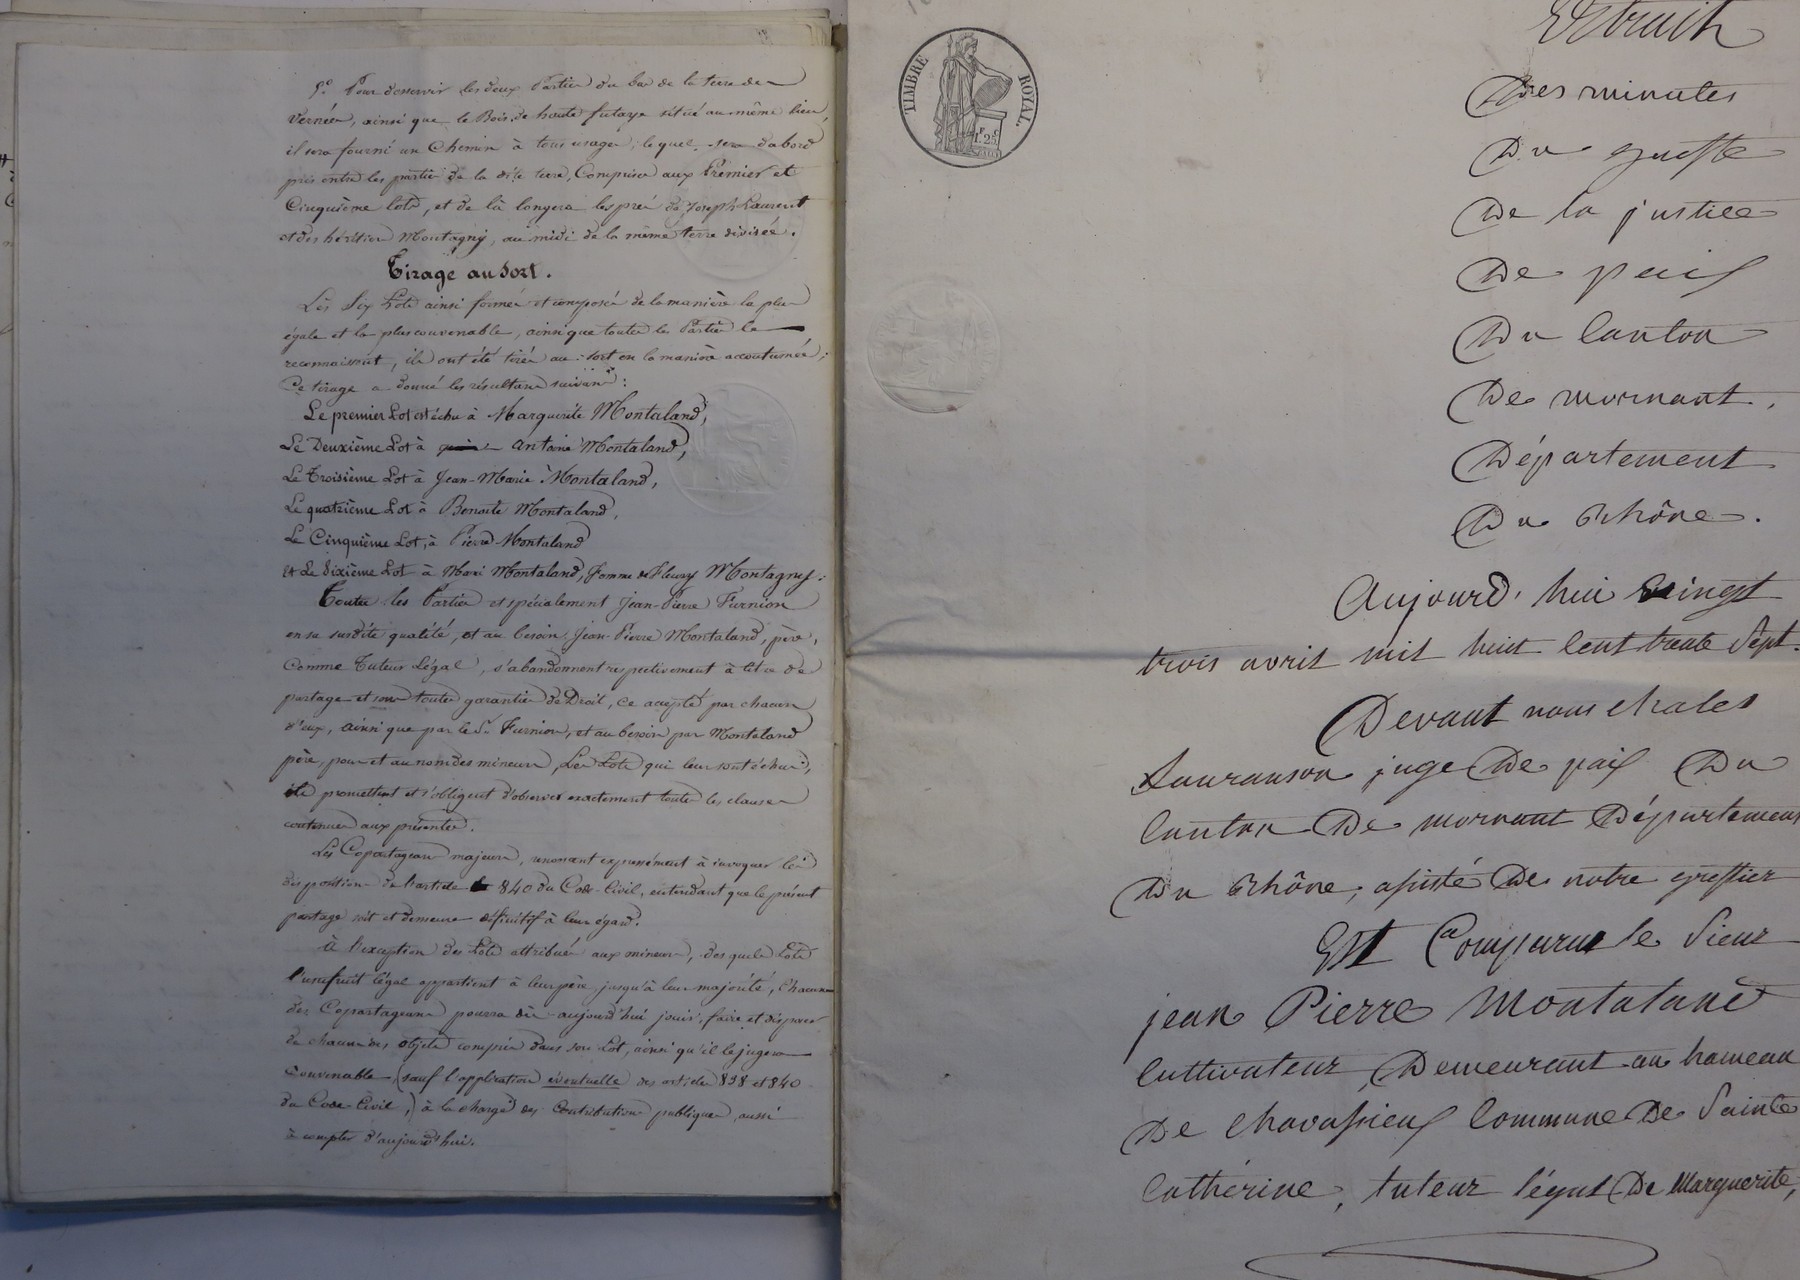 5° Pour desservir les deux Parties du bas de la terre des
Vernées, ainsi que le Bois de haute futaye situé au même lieu,
il sera fourni un Chemin à tous usages, lequel sera d'abord
pris entre les parties de la dite terre, Comprises aux Premier et
Cinquième lots, et de là longera les prés de Joseph Laurent
et des héritiers Montagny, au midi de la même terre divisée.
Tirage au Sort.
Les Six Lots ainsi formés et composés de la manière la plus
égale et la plus convenable, ainsi que toutes les Parties le
reconnaissent, ils ont été tirés au sort en la manière accoutumée;
Ce tirage a donné les résultats suivans:
Le premier Lot est échu à Marguerite Montaland,
Le Deuxième Lot à Antoine Montaland,
Le Troisième Lot à Jean-Marie Montaland,
Le quatrième Lot à Benoite Montaland,
Le Cinquième Lot, à Pierre Montaland
Et Le Sixième Lot à Marie Montaland, femme de Fleury Montagny.
Toutes les Parties et spécialement Jean-Pierre Furnion
en sa susdite qualité, et au besoin Jean-Pierre Montaland, père,
Comme Tuteur Légal, s'abandonnent respectivement à titre de
partage et sous toutes garanties de Droit, ce accepté par chacun
d'eux, ainsi que par le Sr. Furnion, et au besoin par Montaland
père, pour et au nom des mineurs, Les Lots qui leur sont échus;
ils promettent et s'obligent d'observer exactement toutes les clauses
contenues aux présentes.
Les Copartageans majeurs, renonçant expressément à invoquer les
dispositions de l'article 840 du Code-Civil, entendant que le présent
partage soit et demeure définitif à leur égard.
à l'exception des Lots attribués aux mineurs, desquels Lots
l'usufruit légal appartient à leur père jusqu'à leur majorité, Chacun
des Copartageans pourra dès-aujourd'hui jouir, faire et disposer
de chacun des objets compris dans son Lot, ainsi qu'il le jugera
Convenable, (sauf l'application éventuelle des articles 838 et 840
du Code-Civil,) à la charge des Contributions publiques, aussi
à compter d'aujourd'hui.
TIMBRE ROYAL.
1F. 25c
Extrait
Des minutes
Du greffe
De la justice
De paix
Du Canton
De mornant,
Département
Du Rhône.
Aujourd'hui vingt
trois avril mil huit Cent trente Sept.
Devant nous Chales
Sauranson juge De paix Du
Canton De mornant Département
Du Rhône, asisté De notre greffier
Est Comparu le Sieur
jean Pierre Montaland
Cultivateur, Demeurant au hameau
De Chavassieux Commune De Sainte
Cathérine, tuteur légal De Marguerite,